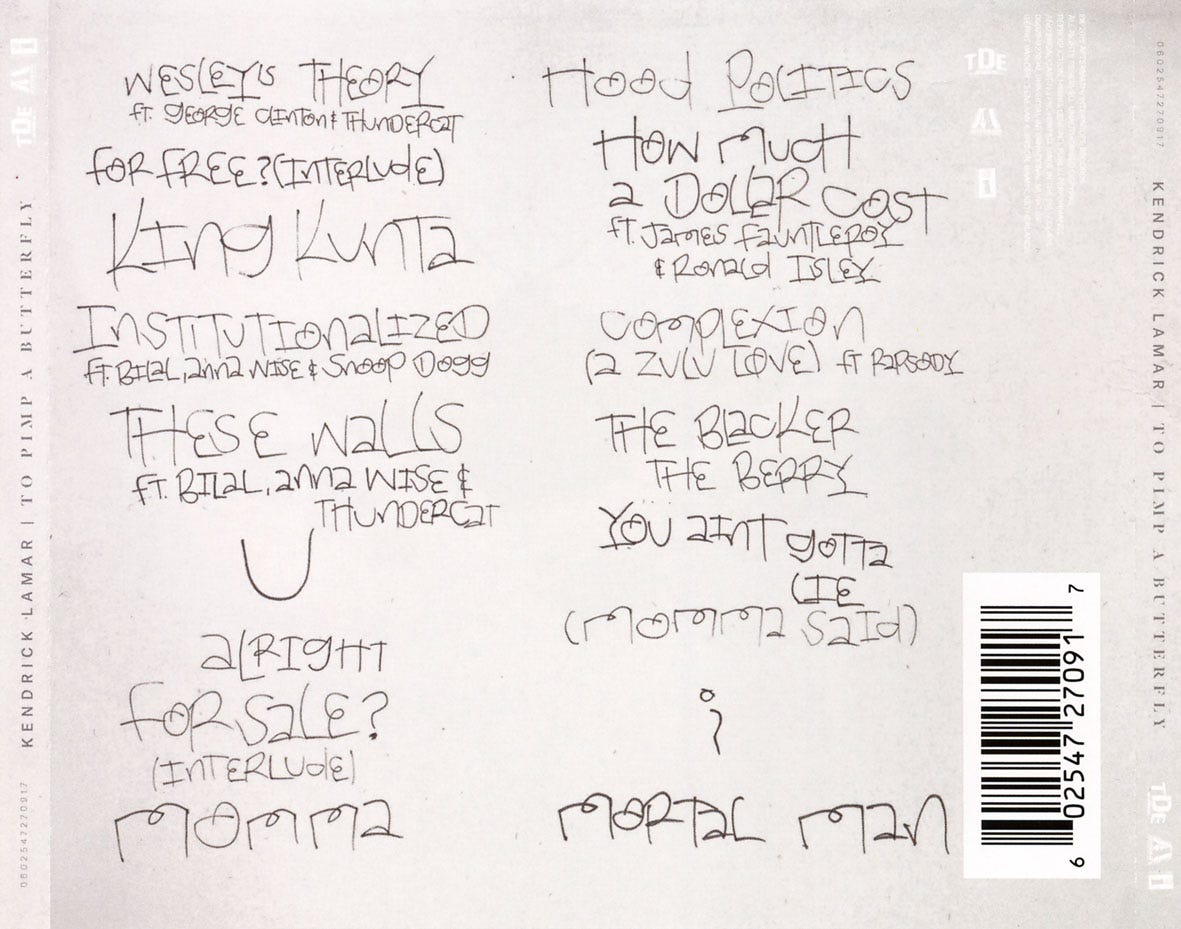 WESLEY'S THEORY
ft. GEORGE CLINTON & THUNDERCAT
FOR FREE? (INTERLUDE)
KING KUNTA
INSTITUTIONALIZED
ft. BILAL, anna WISE & Snoop Dogg
THESE WALLS
ft. BILAL, anna WISE &
THUNDERCAT
U
alRIGHT
FOR SALE?
(INTERLUDE)
MOMMA
Hood POLITICS
HOW MUCH
a DOLLAR COST
ft. JAMES FAUNTLEROY
& RONALD ISLEY
COMPLEXION
(a ZULU LOVE) ft RAPSODY
THE BLACKER
THE BERRY
YOU AINT GOTTA
LIE
(MOMMA SAID)
i
MORTAL MAN
KENDRICK LAMAR | TO PIMP A BUTTERFLY
0602547270917
TDE
KENDRICK LAMAR | TO PIMP A BUTTERFLY
0602547270917
TDE
TDE
6 02547 27091 7